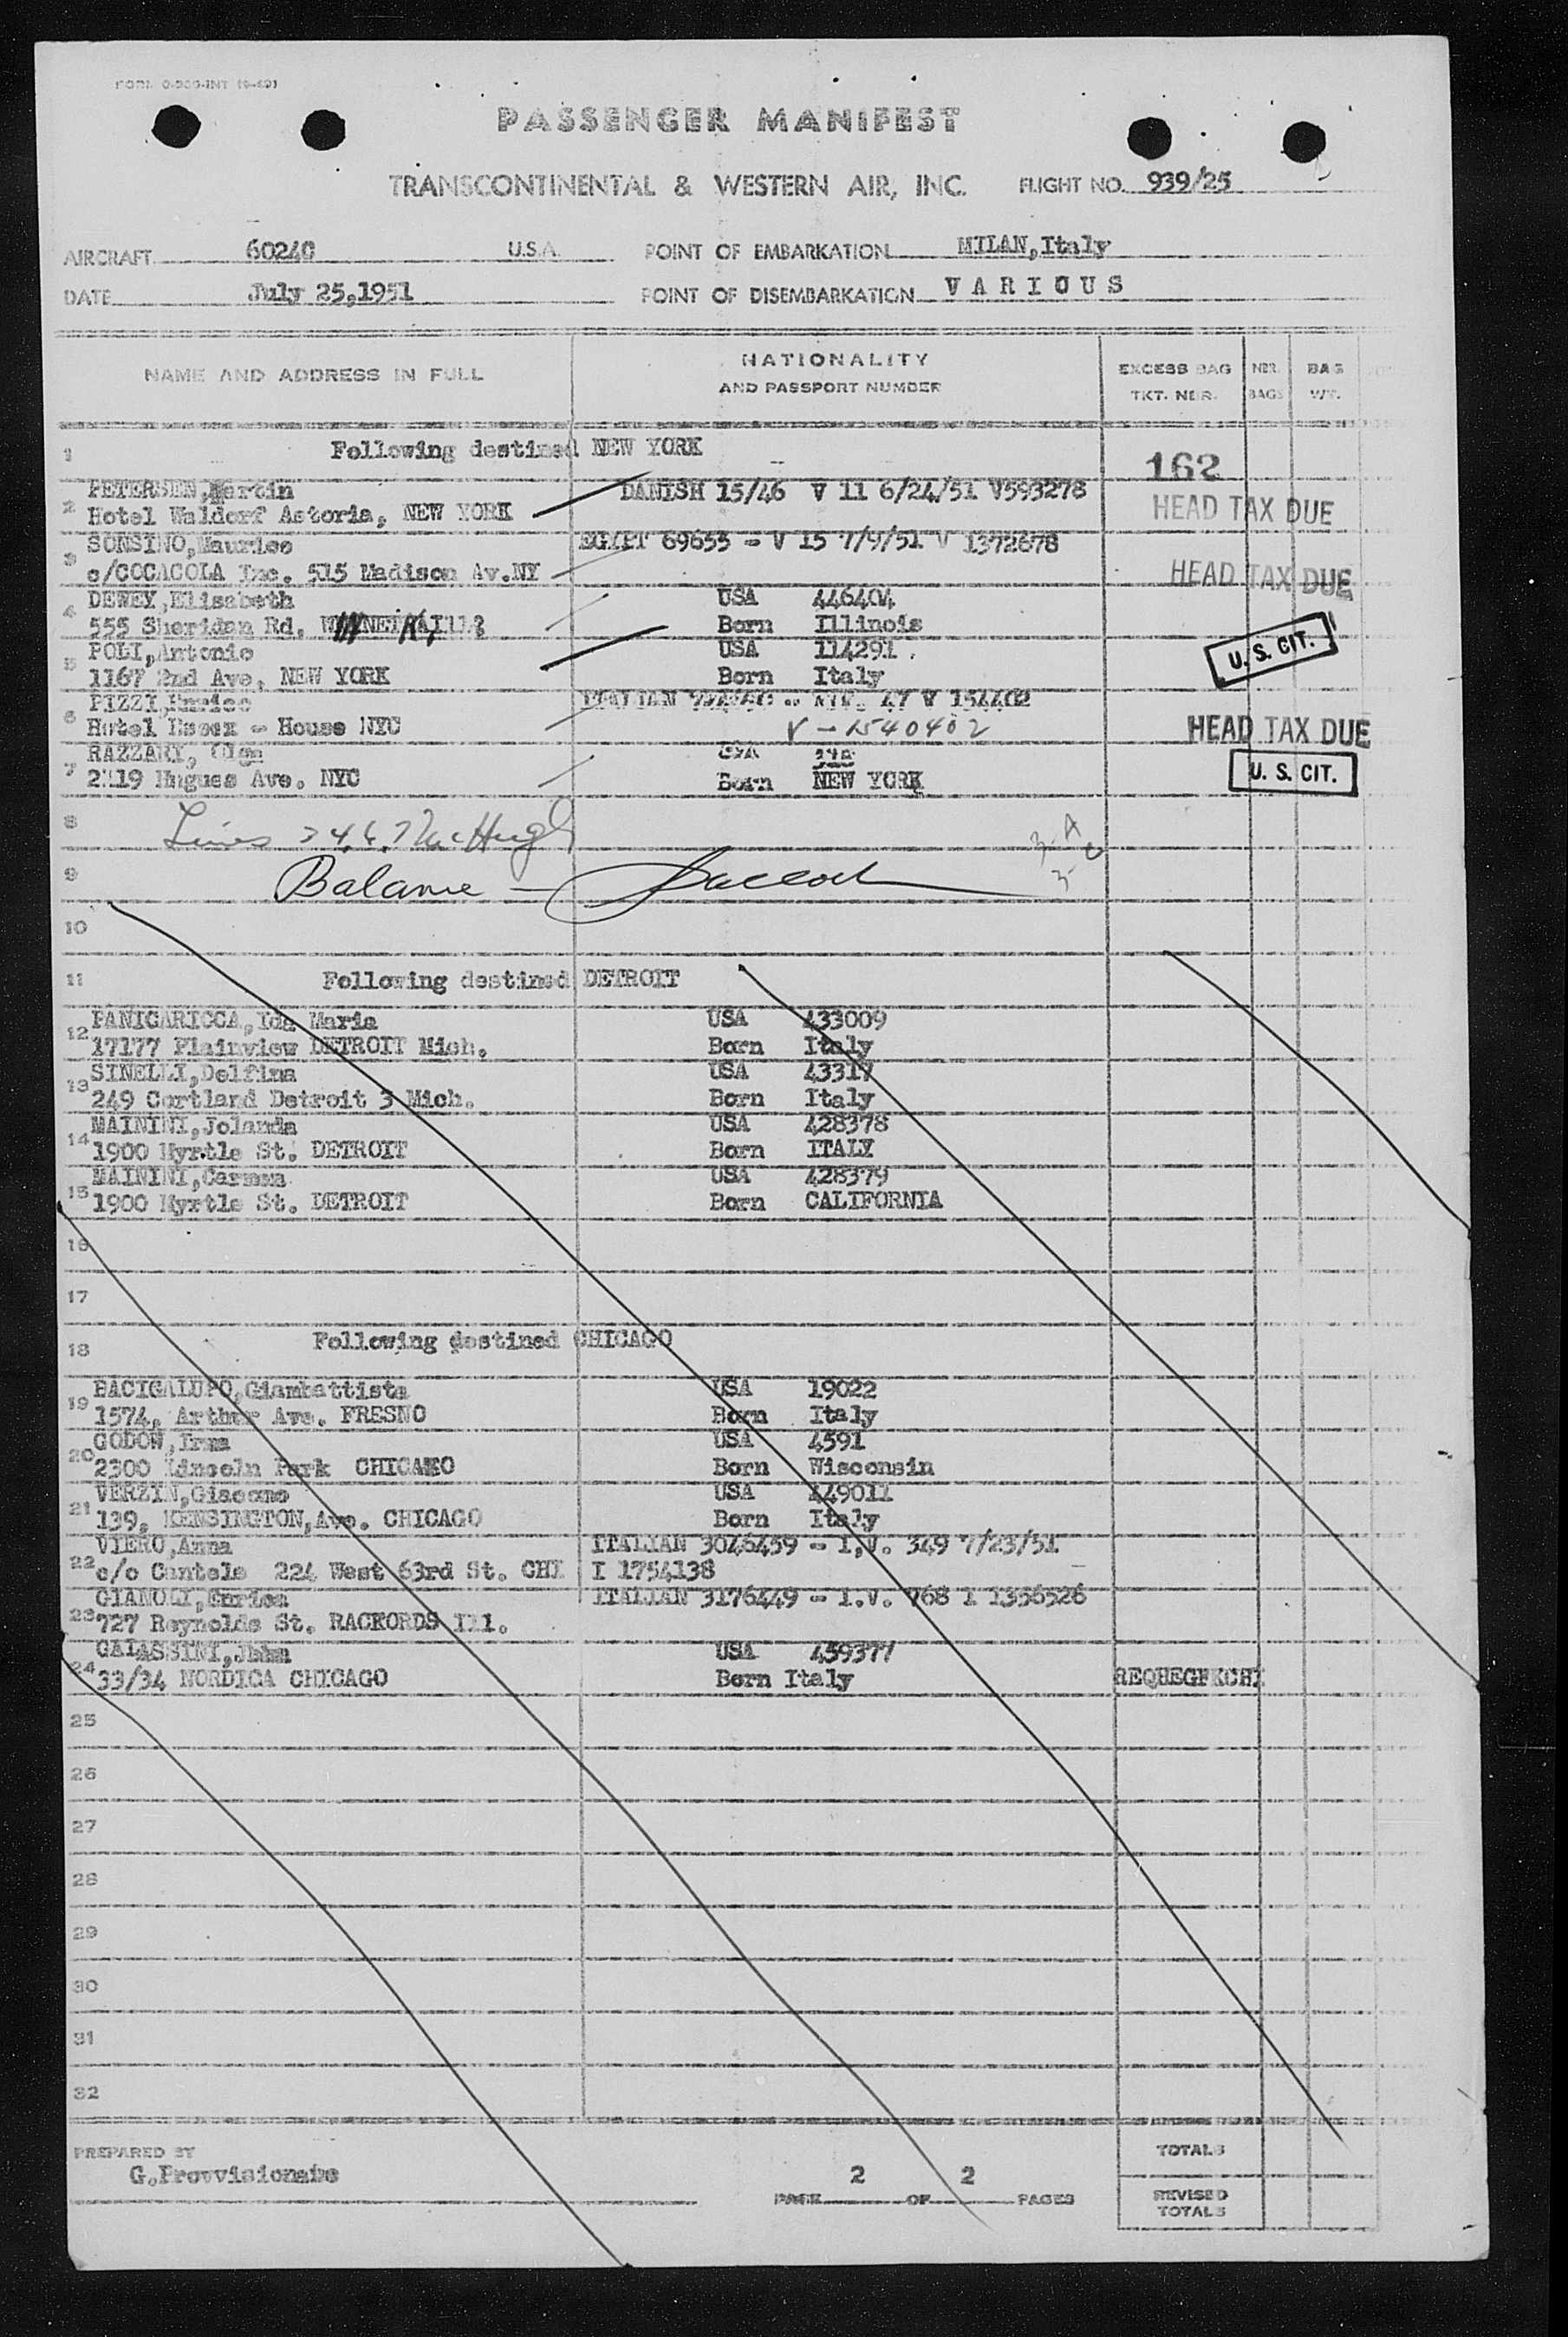 PASSENGER MANIFEST
TRANSCONTINENTAL & WESTERN AIR, INC. FLIGHT NO. 939/25
AIRCRAFT 6024C U.S.A. POINT OF EMBARKATION MILAN,Italy
DATE July 25,1951 POINT OF DISEMBARKATION V A R I O U S
NAME AND ADDRESS IN FULL
NATIONALITY
AND PASSPORT NUMBER
EXCESS BAG
TKT. NBR.
NBR.
BAGS
BAG
WT.
1 Following destined NEW YORK
162
2 PETERSEN,Martin DANISH 15/46 V 11 6/24/51 V593278
Hotel Waldorf Astoria, NEW YORK HEAD TAX DUE
3 SONSINO,Maurice EGYPT 69653 - V 15 7/9/51 V 1372678
c/COCACOLA Inc. 515 Madison Av.NY HEAD TAX DUE
4 DEWEY,Elisabeth USA 446404
555 Sheridan Rd. Born Illinois
5 POLI,Antonio USA 114291
1167 2nd Ave, NEW YORK Born Italy U. S. CIT.
6 PIZZI,Enrico ITALIAN 47 V 154402
Hotel Essex - House NYC V - 1540402 HEAD TAX DUE
7 RAZZARY, Olga USA
2119 Hugues Ave. NYC Born NEW YORK U. S. CIT.
8 Lines
9 Balance -
10
11 Following destined DETROIT
12 PANIGARICCA,Ida Maria USA 433009
17177 Plainview DETROIT Mich. Born Italy
13 SINELLI,Delfina USA 43317
249 Cortland Detroit 3 Mich. Born Italy
14 MAININI,Jolanda USA 428378
1900 Myrtle St. DETROIT Born ITALY
15 MAININI,Carmen USA 428379
1900 Myrtle St. DETROIT Born CALIFORNIA
16
17
18 Following destined CHICAGO
19 BACIGALUPO,Giambattista USA 19022
1574, Arthur Ave. FRESNO Born Italy
20 GODOW,Irma USA 4591
2300 Lincoln Park CHICAGO Born Wisconsin
21 VERZIN,Giacomo USA 449011
139, KENSINGTON,Ave. CHICAGO Born Italy
22 VIERO,Anna ITALIAN 3046459 - I.V. 349 7/23/51
c/o Cantele 224 West 63rd St. CHI I 1754138
23 GIANOLI,Enrica ITALIAN 3176449 - I.V. 768 I 1356526
727 Reynolds St. RACKORDS Ill.
24 GALASSINI,John USA 459377
33/34 NORDICA CHICAGO Born Italy
25
26
27
28
29
30
31
32
PREPARED BY
G.Provvisionato
PAGE 2 OF 2 PAGES
TOTALS
REVISED
TOTALS